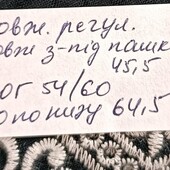 овж. регул.
овж з-під пашк
45,5
ОГ 54/60
О по низу 64,5